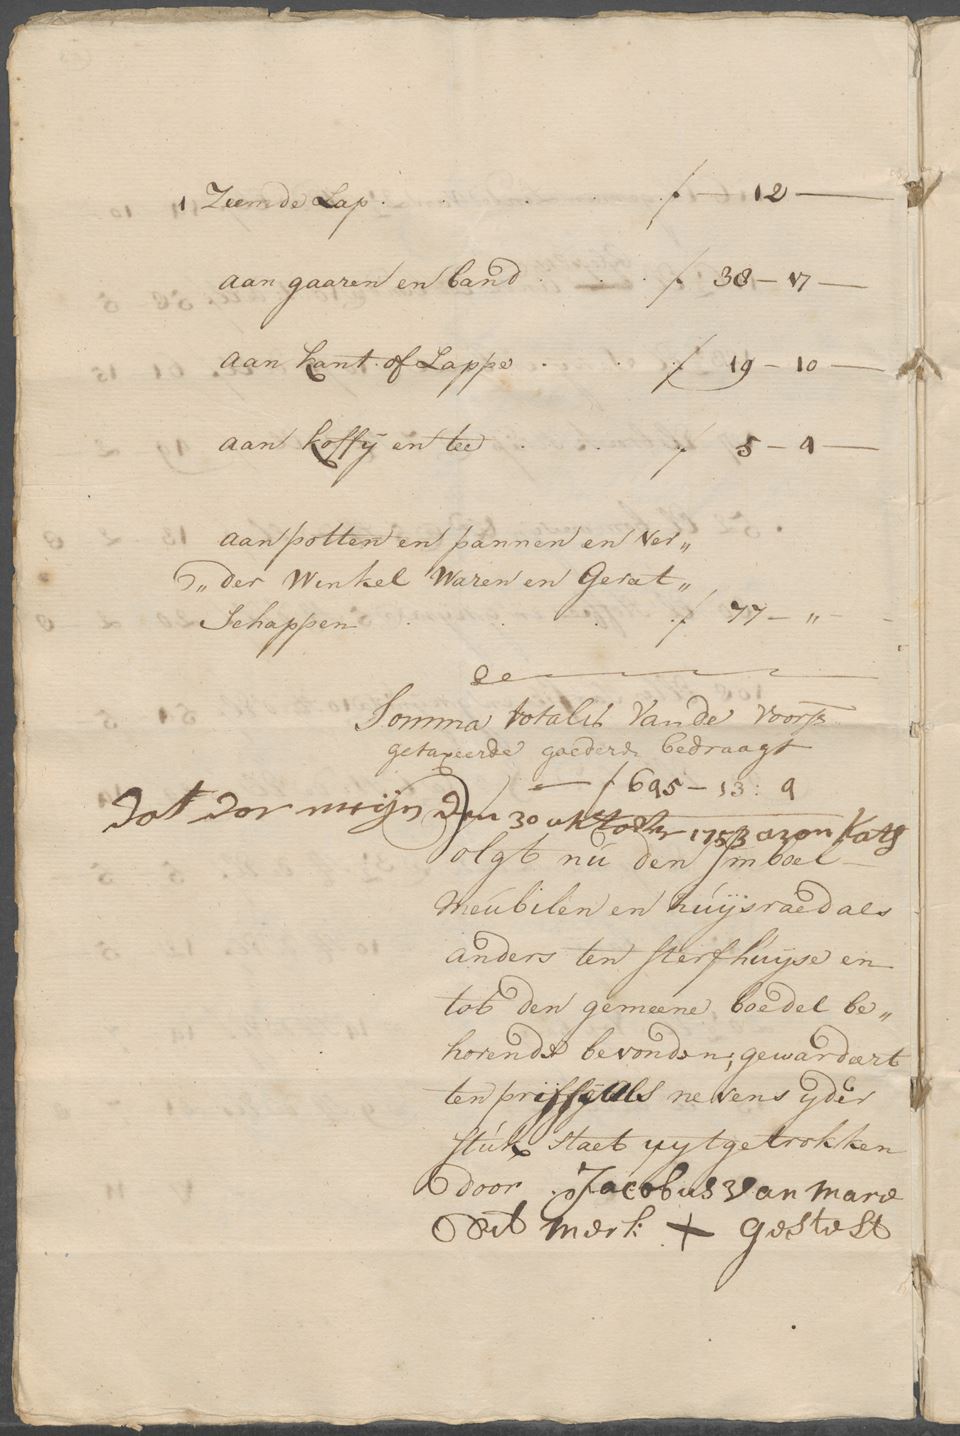 1 Zeemde Lap . . . . ƒ — 12 —
aan gaaren en band . . . ƒ 38 — 17 —
aan kant of Lappe . . . ƒ 19 — 10 —
aan koffÿ en tee . . . ƒ 5 — 9 —
aan potten en pannen en ver„
„der Winkel Waren en Gerat„
Schappen . . . . ƒ 77 — „ —
Somma totalis van de voorsz
getaxeerde goedere bedraagt
— ƒ 695 — 13 : 9
dat dor mijn den 30 oktober 1753 aron Kats
olgt nu den Imboel
Meubilen en huijsraed als
anders ten sterfhuijse en
tot den gemeene boedel be„
horende bevonden, gewardeert
ten prijsse als nevens ijder
stuk staet uytgetrokken
door Jacobus van mare
Dit merk + gestelt